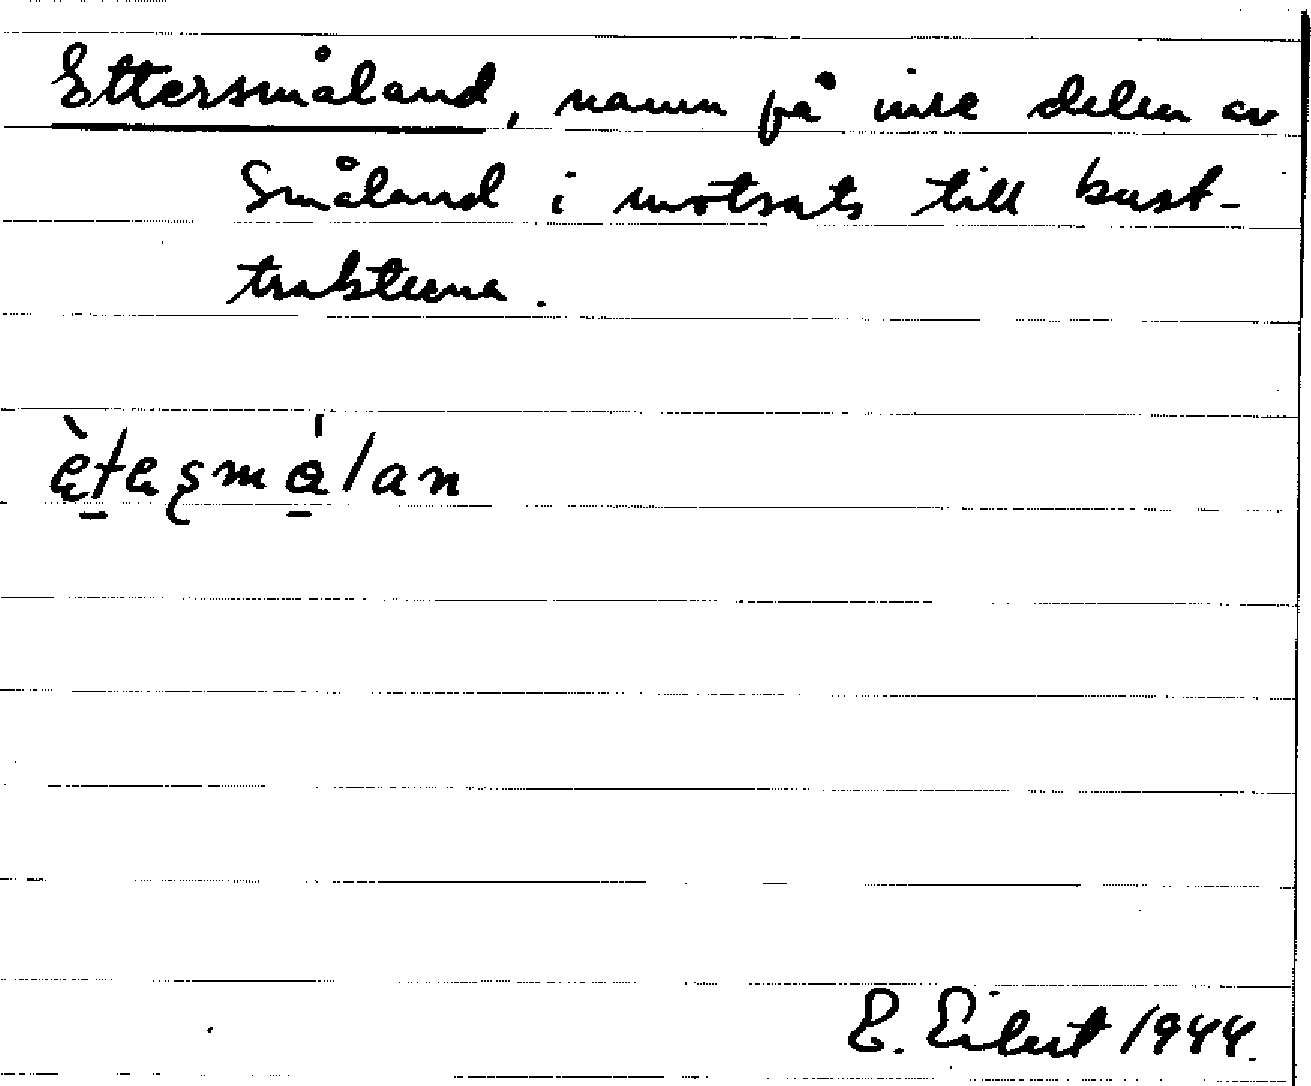 Ettersmåland, namn på inre delen av
Småland i motsats till kust-
trakterna.
E. Eilert 1944.